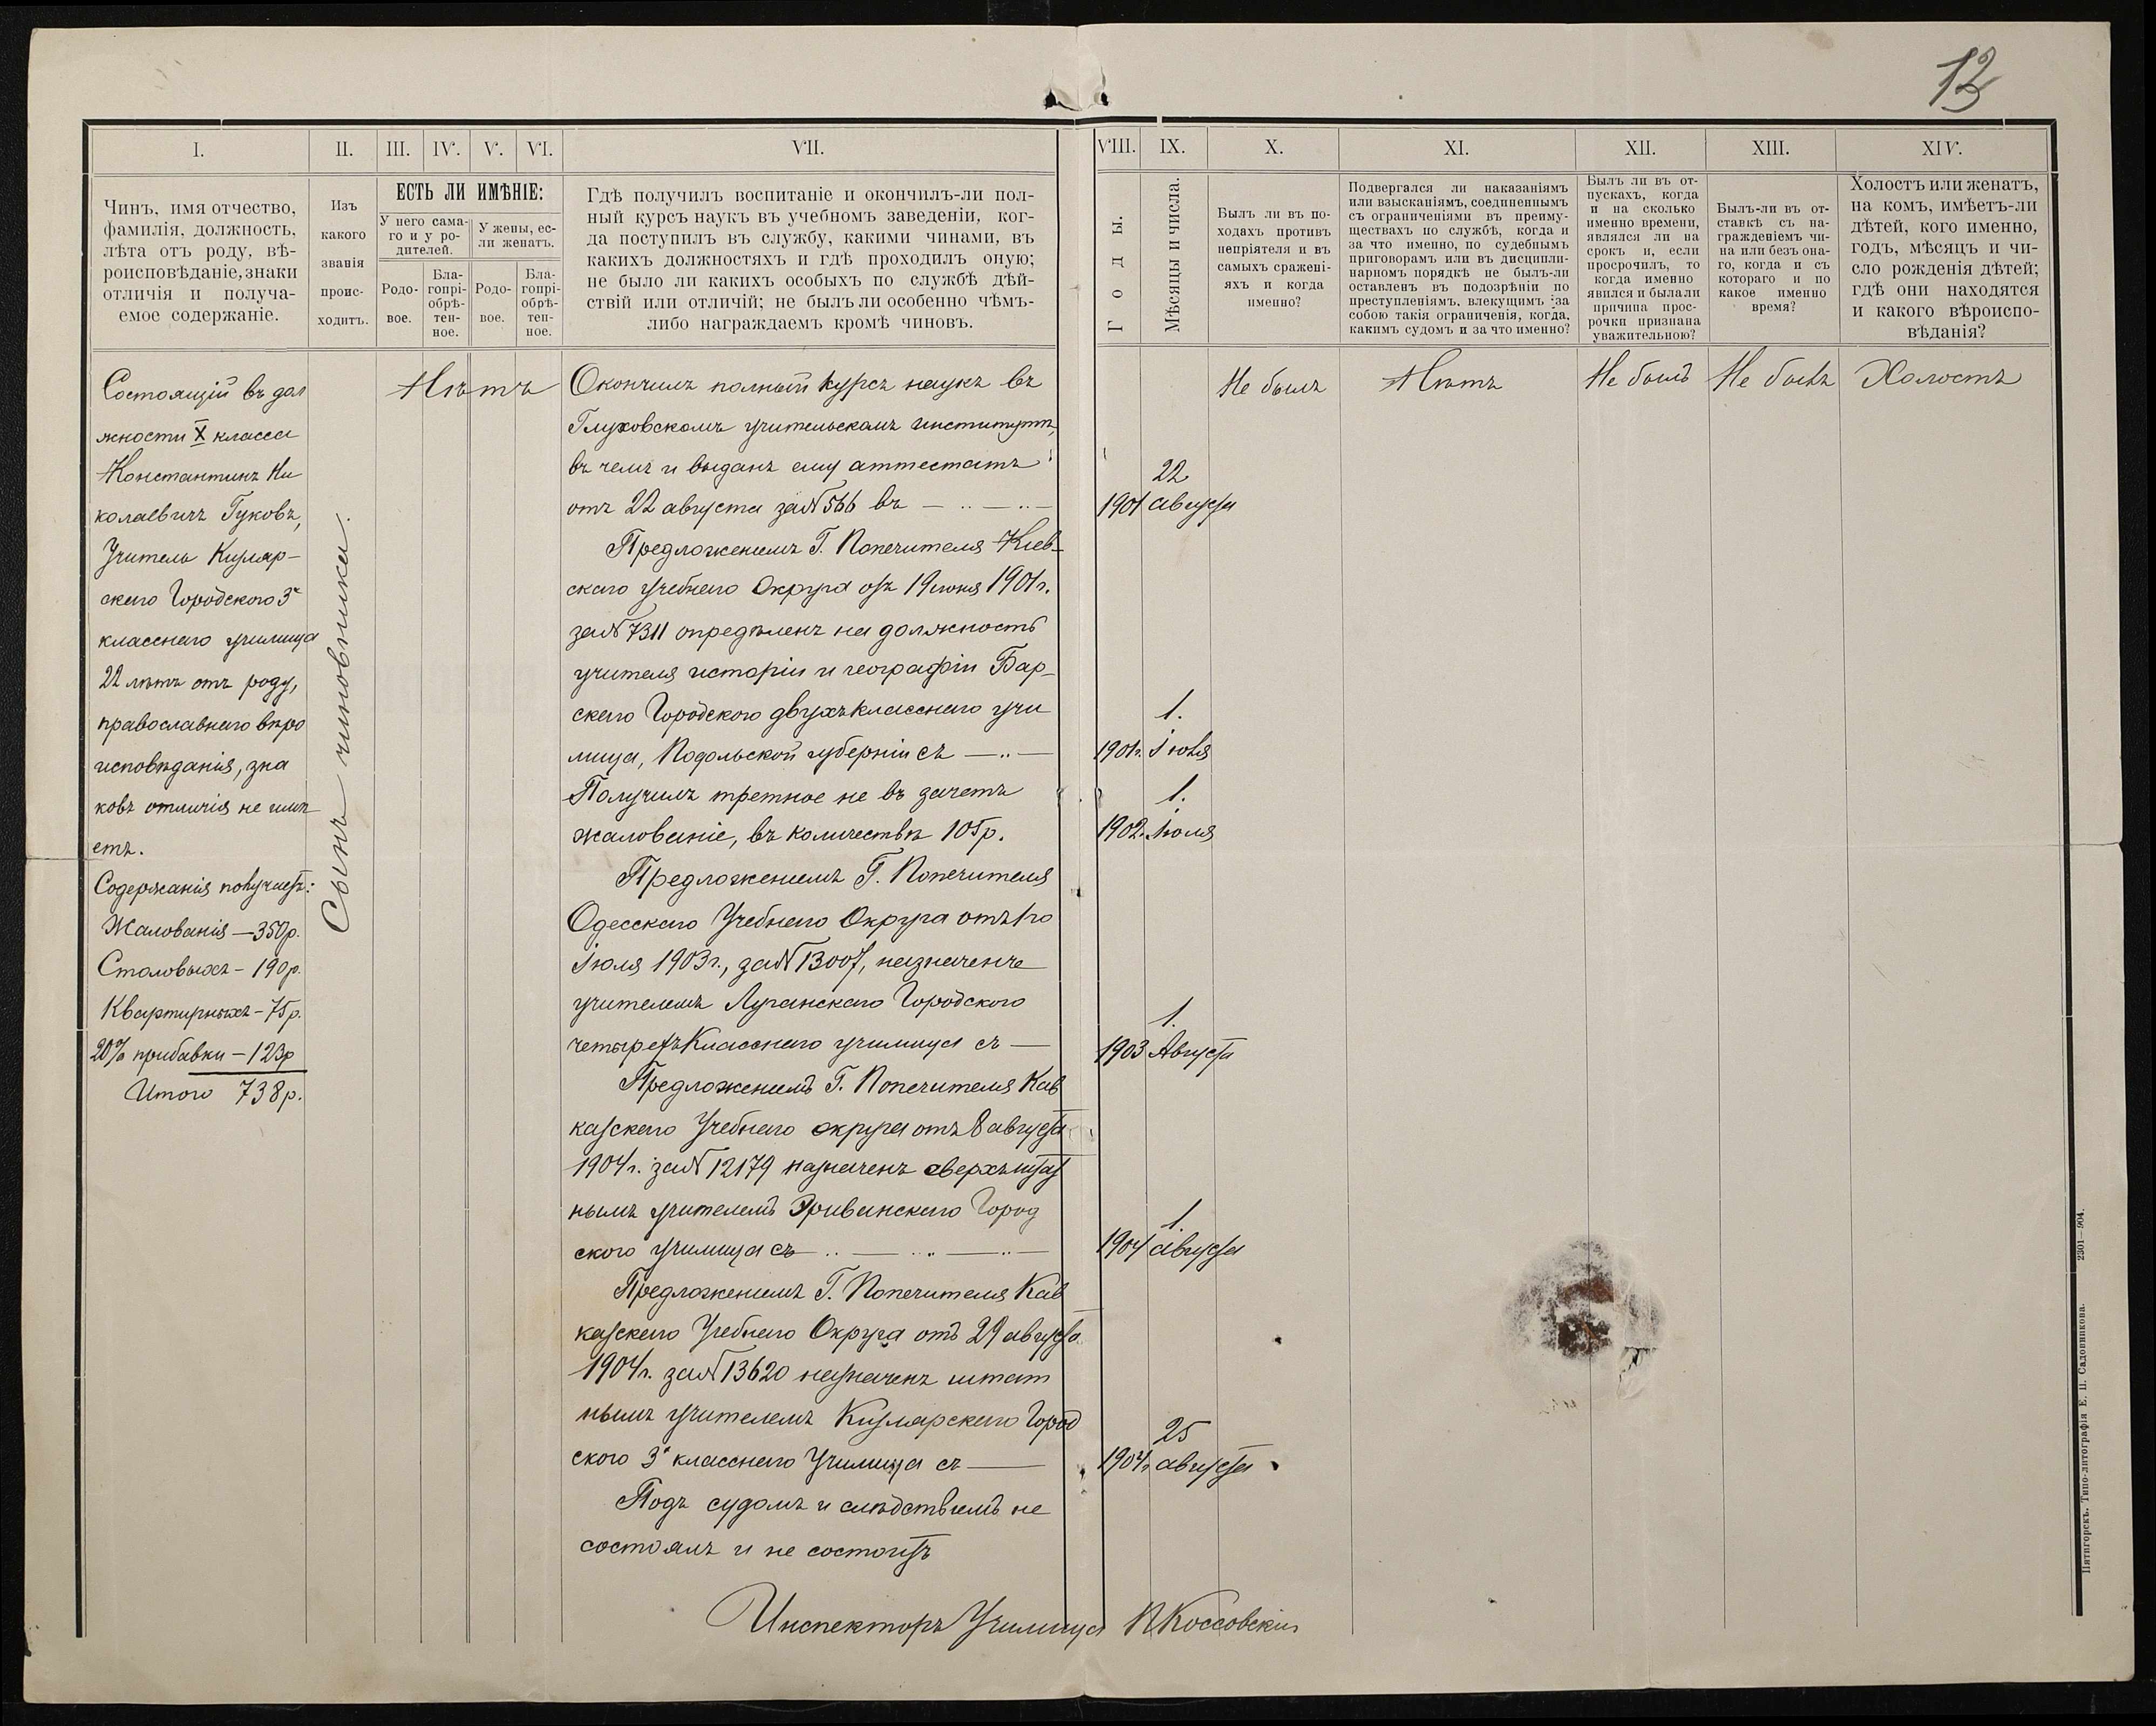 13
I.
II.
III.
IV.
V.
VI.
VII.
VIII.
IX.
X.
XI.
XII.
XIII.
XIV.
Чинъ, имя отчество,
фамилія, должность,
лѣта отъ роду, вѣ-
роисповѣданіе, знаки
отличія и получа-
емое содержаніе.
Изъ
какого
званія
проис-
ходитъ.
ЕСТЬ ЛИ ИМѢНІЕ:
У него сама-
го и у ро-
дителей.
У жены, ес-
ли женатъ.
Родо-
вое.
Бла-
гопрі-
обрѣ-
тен-
ное.
Родо-
вое.
Бла-
гопрі-
обрѣ-
тен-
ное.
Гдѣ получилъ воспитаніе и окончилъ-ли пол-
ный курсъ наукъ въ учебномъ заведеніи, ког-
да поступилъ въ службу, какими чинами, въ
какихъ должностяхъ и гдѣ проходилъ оную;
не было ли какихъ особыхъ по службѣ дѣй-
ствій или отличій; не былъ ли особенно чѣмъ-
либо награждаемъ кромѣ чиновъ.
Годы.
Мѣсяцы и числа.
Былъ ли въ по-
ходахъ противъ
непріятеля и въ
самыхъ сражені-
яхъ и когда
именно?
Подвергался ли наказаніямъ
или взысканіямъ, соединеннымъ
съ ограниченіями въ преиму-
ществахъ по службѣ, когда и
за что именно, по судебнымъ
приговорамъ или въ дисципли-
нарномъ порядкѣ не былъ-ли
оставленъ въ подозрѣніи по
преступленіямъ, влекущимъ за
собою такія ограниченія, когда,
какимъ судомъ и за что именно?
Былъ ли въ от-
пускахъ, когда
и на сколько
именно времени,
являлся ли на
срокъ и, если
просрочилъ, то
когда именно
явился и былали
причина прос-
рочки признана
уважительною?
Былъ-ли въ от-
ставкѣ съ на-
гражденіемъ чи-
на или безъ она-
го, когда и съ
котораго и по
какое именно
время?
Холостъ или женатъ,
на комъ, имѣетъ-ли
дѣтей, кого именно,
годъ, мѣсяцъ и чи-
сло рожденія дѣтей;
гдѣ они находятся
и какого вѣроиспо-
вѣданія?
Состоящій въ дол
жности X класса
Константинъ Ни
колаевичъ Гуковъ,
Учитель Кизляр-
скаго Городского 3х
класснаго училища
22 лѣтъ отъ роду,
православнаго вѣро
исповѣданія, зна
ковъ отличія не имѣ
етъ.
Содержанія получаетъ:
Жалованія — 350р.
Столовыхъ - 190р.
Квартирныхъ - 75р.
20% прибавки - 123р
Итого 738р.
Сынъ чиновника.
Нѣтъ
Окончилъ полный курсъ наукъ въ
Глуховскомъ учительскомъ институтѣ,
въ чемъ и выданъ ему аттестатъ
отъ 22 августа за № 566 въ
22
1901 августа
Предложеніемъ Г. Попечителя Кіев-
скаго Учебнаго Округа отъ 19 іюня 1901г.
за № 7311 опредѣленъ на должность
учителя исторіи и географіи Бар-
скаго Городского двухъкласснаго учи
лища, Подольской губерніи съ
1.
1901г. Іюля
Получилъ третное не въ зачетъ
жалованіе, въ количествѣ 105р.
1.
1902г. Іюля
Предложеніемъ Г. Попечителя
Одесскаго Учебнаго Округа отъ 1го
Іюля 1903г., за № 13007, назначенъ
учителемъ Луганскаго Городского
четырехъкласснаго училища съ
1.
1903 Августа
Предложеніемъ Г. Попечителя Кав
казскаго Учебнаго округа отъ 8 августа
1904г. за № 12179 назначенъ сверхъштат
нымъ учителемъ Эриванскаго Город
ского училища съ
1.
1904 августа
Предложеніемъ Г. Попечителя Кав
казскаго Учебнаго Округа отъ 29 августа
1904г. за № 13620 назначенъ штат
нымъ учителемъ Кизлярскаго Город
ского 3х класснаго Училища съ
25
1904г августа
Подъ судомъ и слѣдствіемъ не
состоялъ и не состоитъ
Инспекторъ Училища П Коссовскій
Не былъ
Нѣтъ
Не былъ
Не былъ
Холостъ
Пятигорскъ. Типо-литографія Е. П. Садовникова. 2301—904.